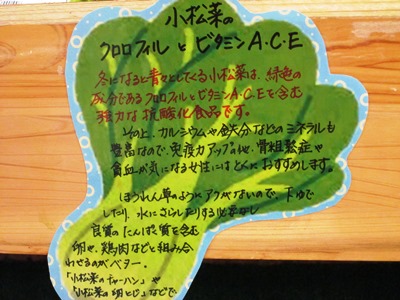 小松菜の
クロロフィル と ビタミンA・C・E
冬になると青々としてくる小松菜は、緑色の
成分であるクロロフィルとビタミンA・C・Eを含む
強力な抗酸化食品です。
その上、カルシウムや鉄分などのミネラルも
豊富なので、免疫力アップの他、骨粗鬆症や
貧血が気になる女性にはとくにおすすめします。
ほうれん草のようにアクがないので、下ゆで
したり、水にさらしたりする必要なし
良質のたんぱく質を含む
卵や、鶏肉などと組み合
わせるのがベター。
「小松菜のチャーハン」や
「小松菜の卵とじ」などで